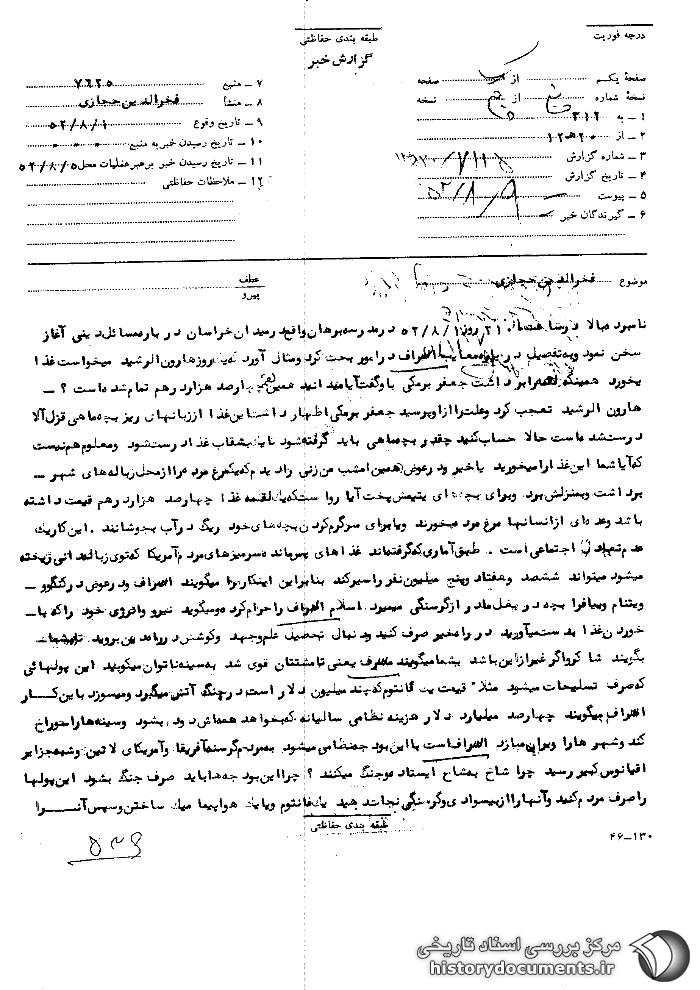 درجه فوریت
طبقه بندی حفاظتی
گزارش خبر
صفحهٔ یکم از صفحه
نسخهٔ شماره از نسخه
۱ - به ۳۱۲
۲ - از ۲۰ ه ۱۲
۳ - شماره گزارش
۴ - تاریخ گزارش ۵۲/۸/۹
۵ - پیوست
۶ - گیرندگان خبر
۷ - منبع ۷۶۲۵
۸ - منشأ فخرالدین حجازی
۹ - تاریخ وقوع ۵۲/۸/۱
۱۰ - تاریخ رسیدن خبر به منبع
۱۱ - تاریخ رسیدن خبر به رهبر عملیات محل ۵۲/۸/۵
۱۲ - ملاحظات حفاظتی
موضوع فخرالدین حجازی
عطف
پیرو
نامبرده بالا در ساعت ۲۱ روز ۵۲/۸/۱ در مدرسه برهان واقع در میدان خراسان در باره مسائل دینی آغاز
سخن نمود و به تفصیل در باره معایب اسراف در امور بحث کرد و مثال آورد که یک روز هارون الرشید میخواست غذا
بخورد همینکه لقمه را برداشت جعفر برمکی باو گفت آیا میدانید همین لقمه چهارصد هزار درهم تمام شده است ؟ -
هارون الرشید تعجب کرد و علت را از او پرسید جعفر برمکی اظهار داشت این غذا از زبانهای ریز بچه ماهی قزل آلا
درست شده است حالا حساب کنید چقدر بچه ماهی باید گرفته شود تا یک بشقاب غذا درست شود و معلوم هم نیست
که آیا شما این غذا را میخورید یا خیر و در عوض همین امشب من زنی را دیدم که یک مرغ مرده را از محل زباله های شهر -
برداشت و بمنزلش برد و برای بچه های یتیمش پخت آیا رواست که یک لقمه غذا چهارصد هزار درهم قیمت داشته
باشد و عده ای از انسانها مرغ مرده بخورند و یا برای سرگرم کردن بچه های خود ریگ در آب بجوشانند . این کار یک
عدم تعادل اجتماعی است . طبق آماری که گرفته اند غذا های پس مانده سر میزهای مردم آمریکا که توی زباله دانی ریخته
میشود میتواند ششصد و هفتاد و پنج میلیون نفر را سیر کند بنابراین اینکار را میگویند اسراف و در عوض در کنگو و -
ویتنام و بیافرا بچه در بغل مادر از گرسنگی میمیرد . اسلام اسراف را حرام کرده و میگوید نیرو و انرژی خود را که با -
خوردن غذا بدست میآورید در راه خیر صرف کنید و دنبال تحصیل علم و جهد و کوشش در راه دین بروید تا بشما
بگویند شاکر و اگر غیر از این باشد بشما میگویند مسرف یعنی تا مشتتان قوی شد به سینه ناتوان میکوبید این پولهائی
که صرف تسلیحات میشود مثلا" قیمت یک فانتوم که چند میلیون دلار است در جنگ آتش میگیرد و میسوزد باین کار
اسراف میگویند چهارصد میلیارد دلار هزینه نظامی سالیانه که بخواهد همه اش دود بشود و سینه ها را سوراخ
کند و شهر ها را ویران سازد اسراف است با این بودجه نظامی میشود به مردم گرسنه آفریقا و آمریکای لاتین و شبه جزایر
اقیانوس کبیر رسید چرا شاخ به شاخ ایستاده و جنگ میکنند ؟ چرا این بودجه ها باید صرف جنگ بشود این پولها
را صرف مردم کنید و آنها را از بیسوادی و گرسنگی نجات دهید یک فانتوم و یا یک هواپیما میگ ساختن و سپس آن را
طبقه بندی حفاظتی
۴۶-۱۳۰
مرکز بررسی اسناد تاریخی
historydocuments.ir